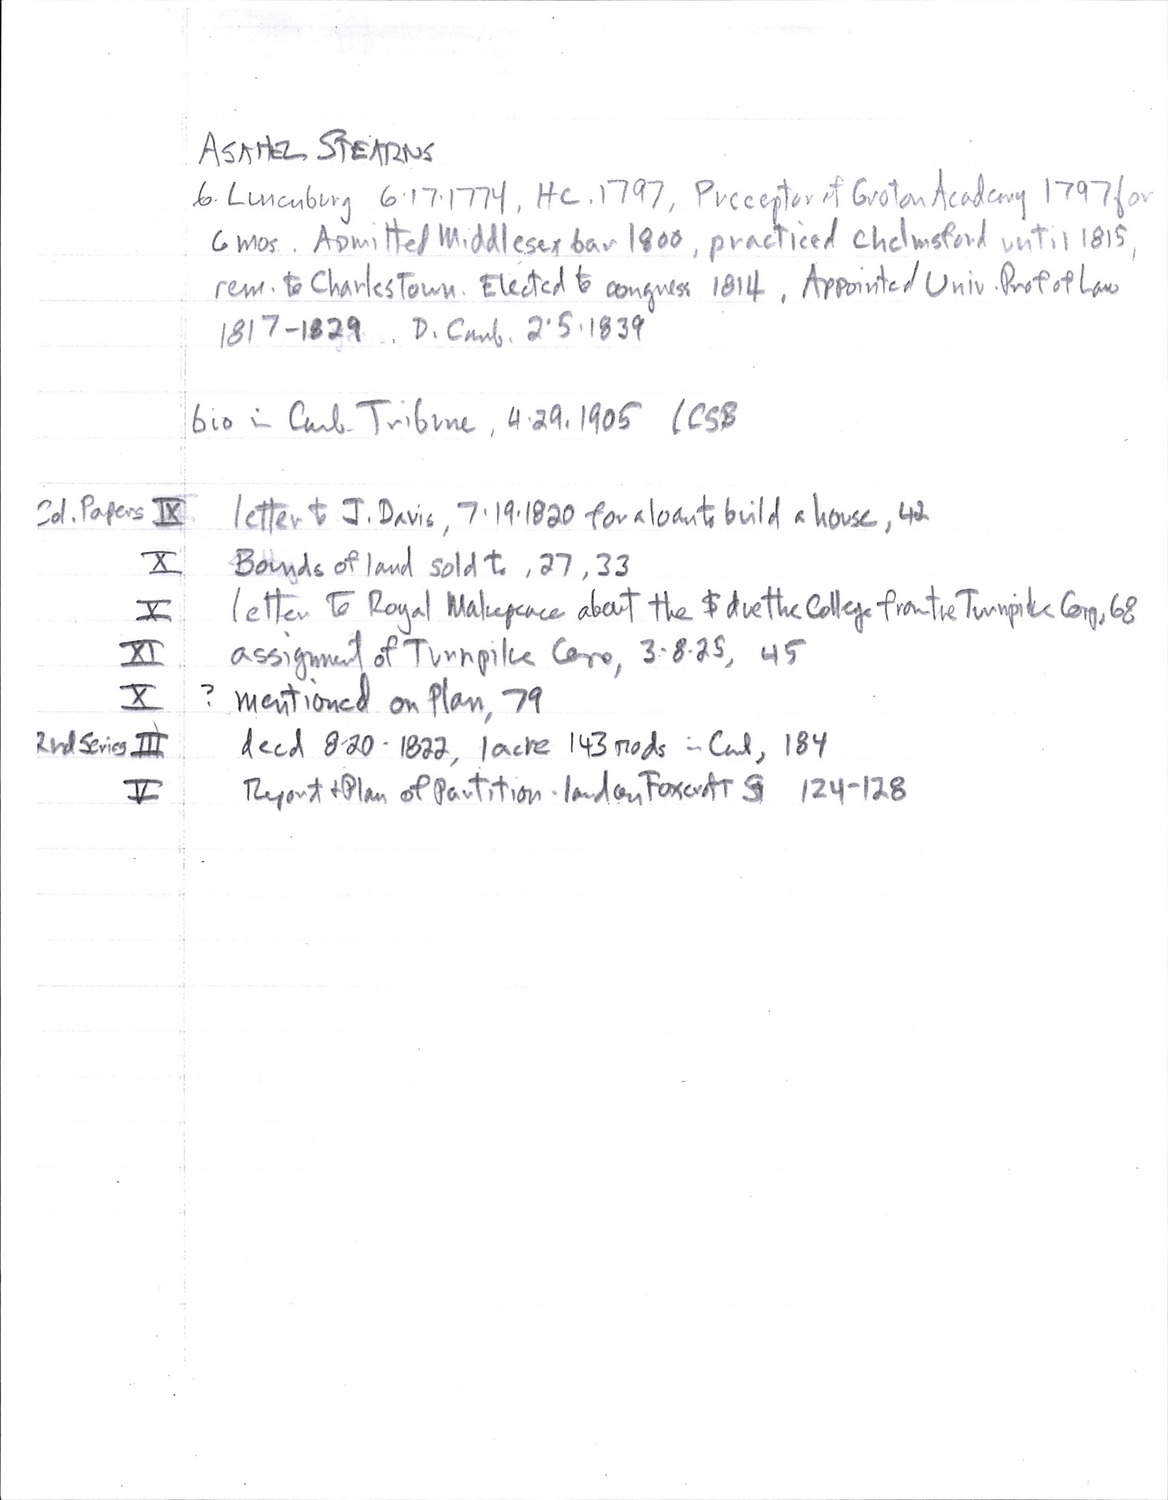 ASAHEL STEARNS
b. Lunenburg 6.17.1774, HC. 1797, Preceptor of Groton Academy 1797 for
6 mos. Admitted Middlesex bar 1800, practiced Chelmsford until 1815,
rem. to Charlestown. Elected to congress 1814, Appointed Univ. Prof of Law
1817-1829. D. Camb. 2.5.1839
bio in Camb. Tribune, 4.29.1905 (CSB
Col. Papers IX letter to J. Davis, 7.19.1820 for a loan to build a house, 42
X Bounds of land sold to, 27, 33
X letter to Royal Makepeace about the $ due the College from the Turnpike Corp, 68
XI assignment of Turnpike Corp, 3-8-25, 45
X ? mentioned on Plan, 79
2nd Series III deed 8-20-1822, 1 acre 143 rods in Camb, 184
V Report + Plan of Partition - land on Foxcroft St 124-128